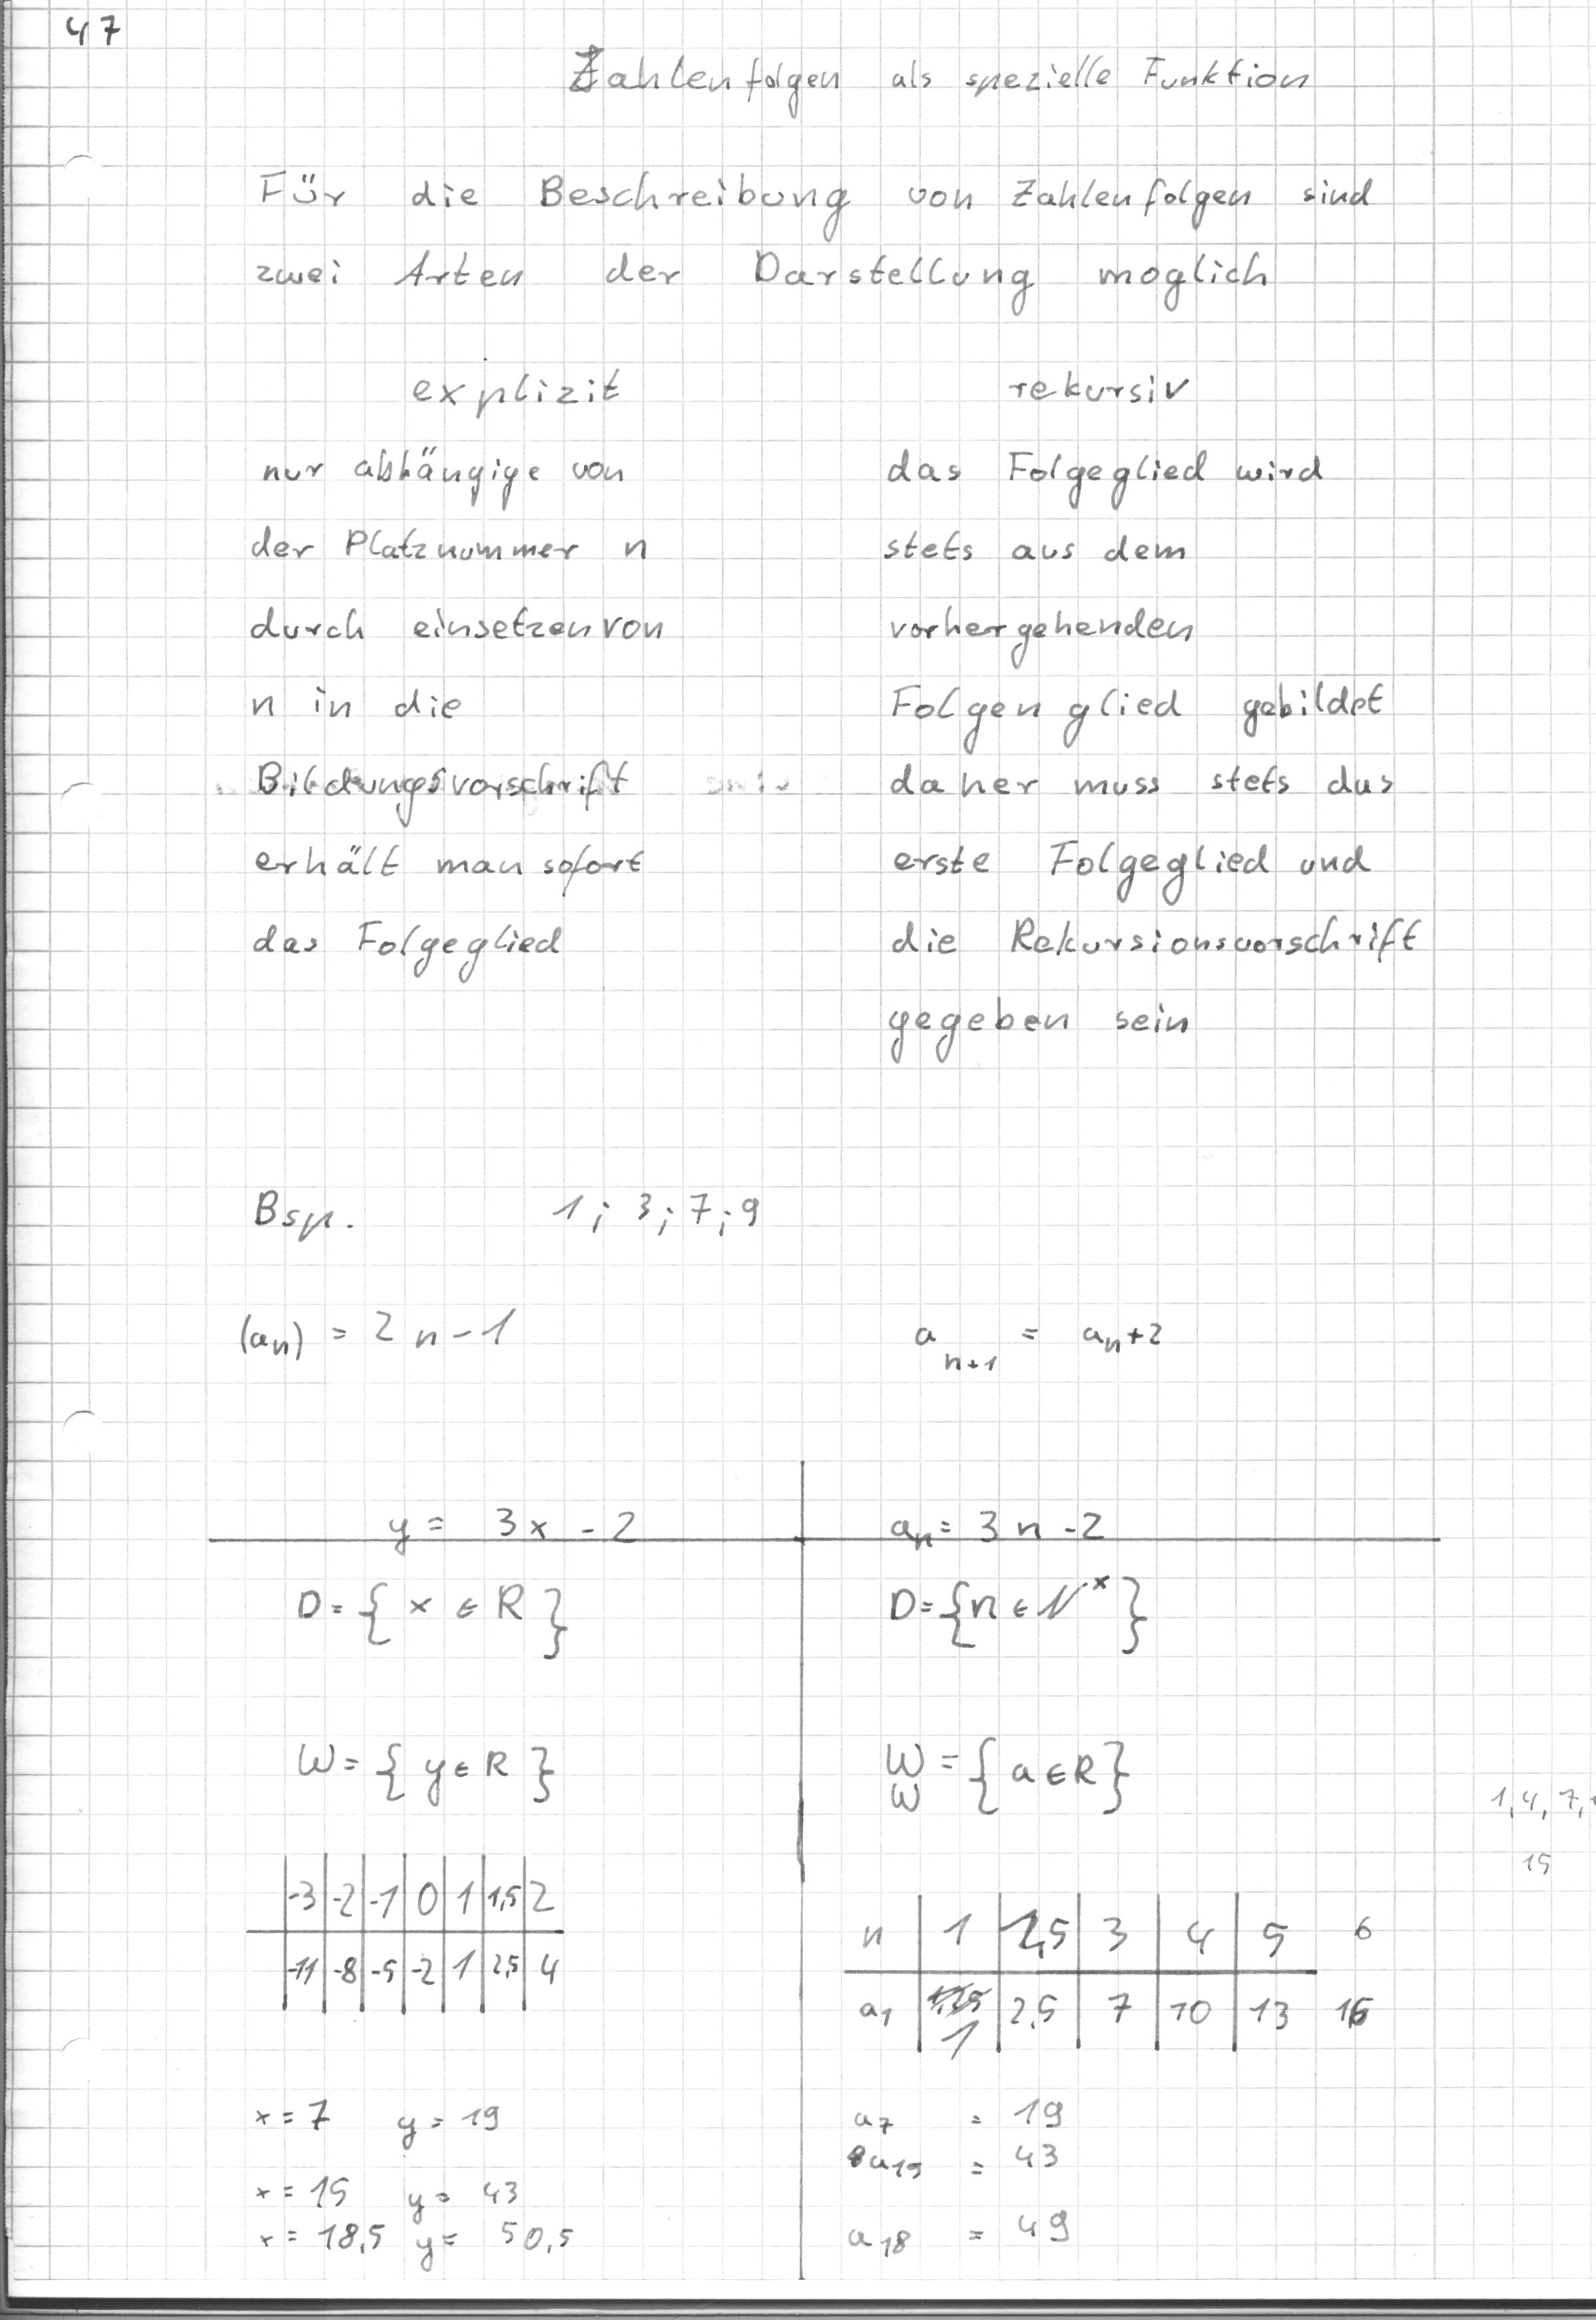 47
Zahlenfolgen als spezielle Funktion
Für die Beschreibung von Zahlenfolgen sind
zwei Arten der Darstellung moglich
explizit
nur abhängige von
der Platznummer n
durch einsetzen von
n in die
Bildungsvorschrift
erhält man sofort
das Folgeglied
rekursiv
das Folgeglied wird
stets aus dem
vorhergehenden
Folgenglied gebildet
daher muss stets das
erste Folgeglied und
die Rekursionsvorschrift
gegeben sein
Bsp. 1; 3; 7; 9
(aₙ) = 2n-1
aₙ₊₁ = aₙ+2
y = 3x - 2
D={ x ∈ R }
W={ y ∈ R }
-3 -2 -1 0 1 1,5 2
-11 -8 -5 -2 1 2,5 4
x = 7 y = 19
x = 15 y = 43
x = 18,5 y = 50,5
aₙ= 3n -2
D={n ∈ N*}
W={ a ∈ R }
W
1, 4, 7,
15
n 1 1,5 3 4 5 6
a₁ 1 2,5 7 10 13 16
a₇ = 19
a₁₅ = 43
a₁₈ = 49